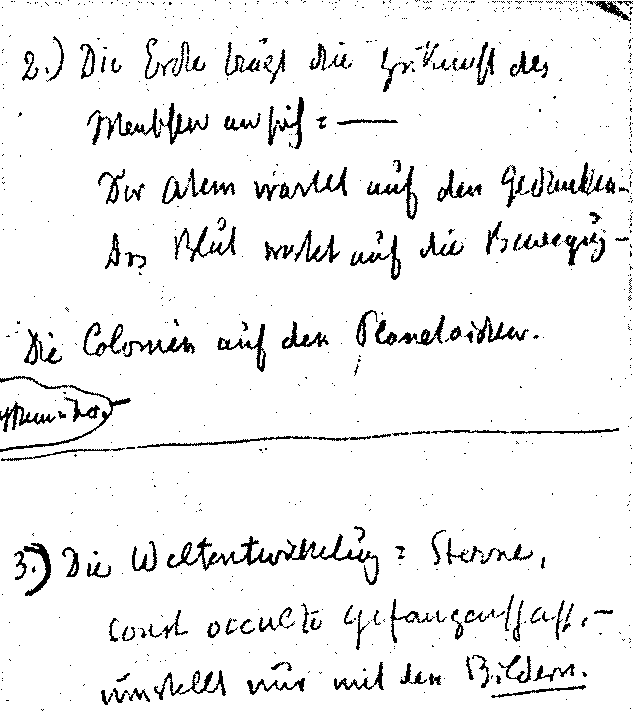 2.) Die Erde trägt die Zukunft des
Menschen an sich = —
Der Atem wartet auf den Gedanken –
Das Blut wartet auf die Bewegung –
Die Colonien auf den Planetoiden.
3.) Die Weltentwickelung = Sterne,
sonst occulte Gefangenschaft, –
umstellt nur mit den Bildern.